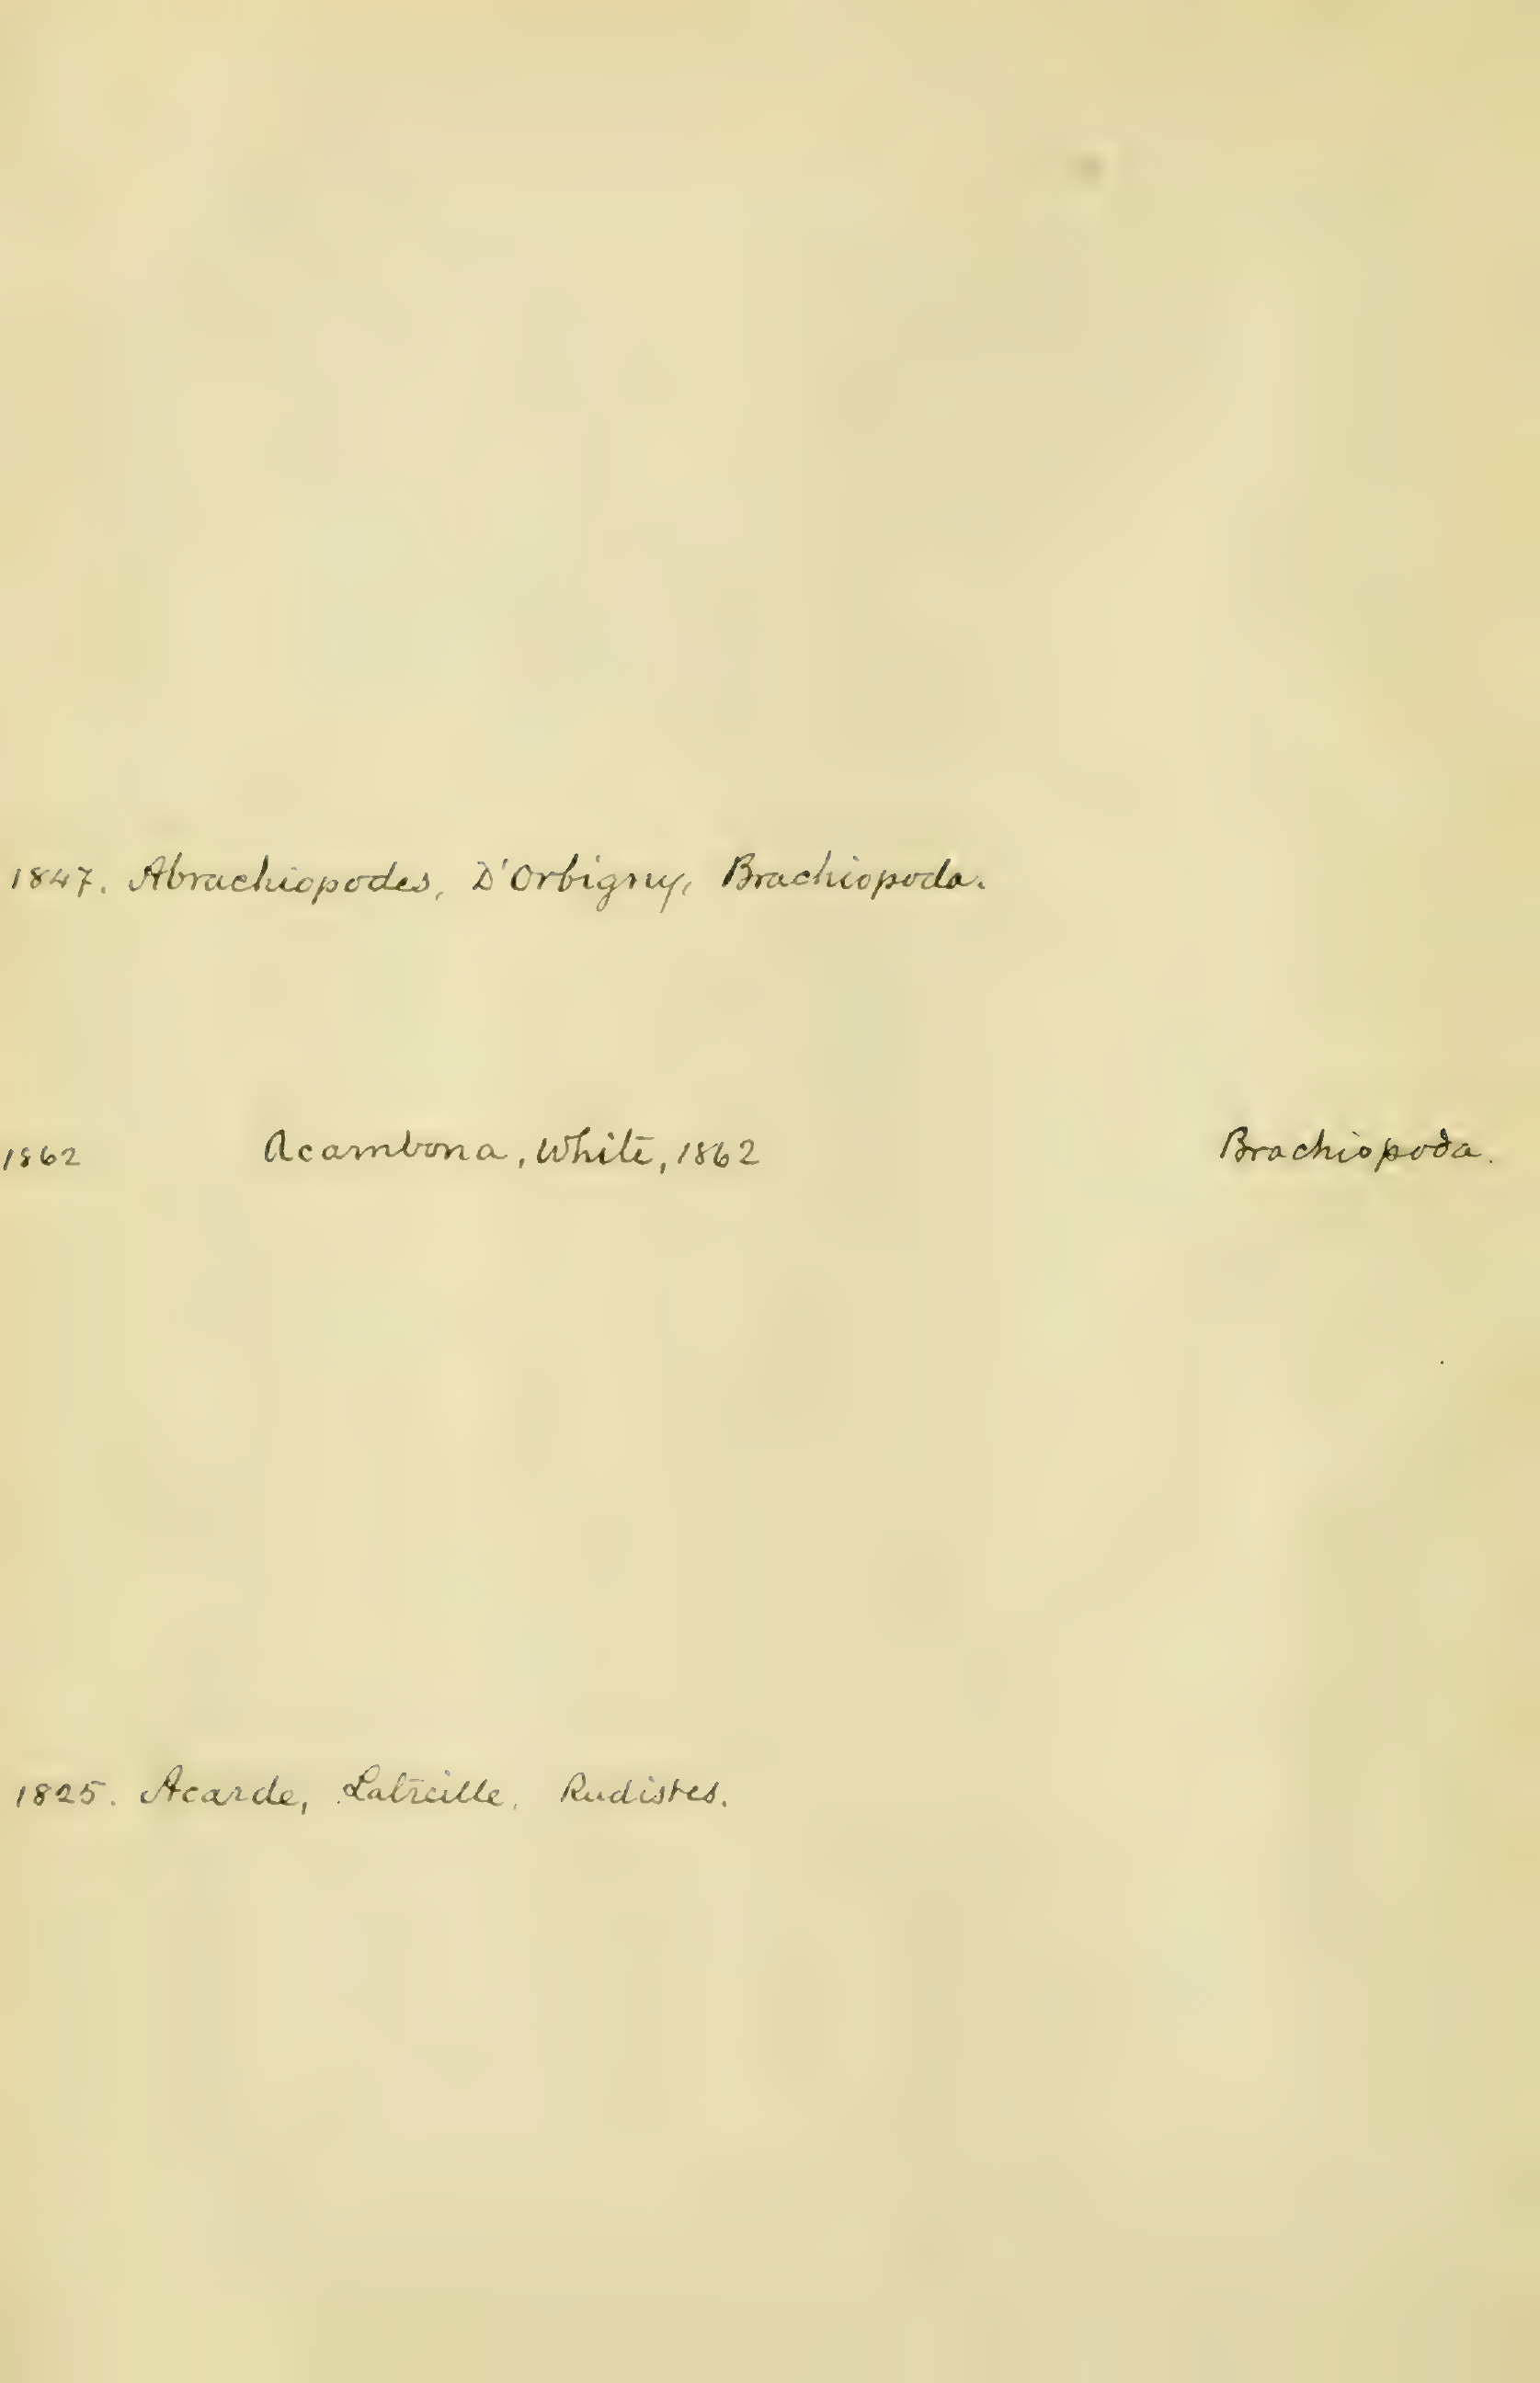 1847. Abrachiopodes, D'Orbigny, Brachiopoda.
1862 Acambona, White, 1862 Brachiopoda.
1825. Acarde, Latreille, Rudistes.